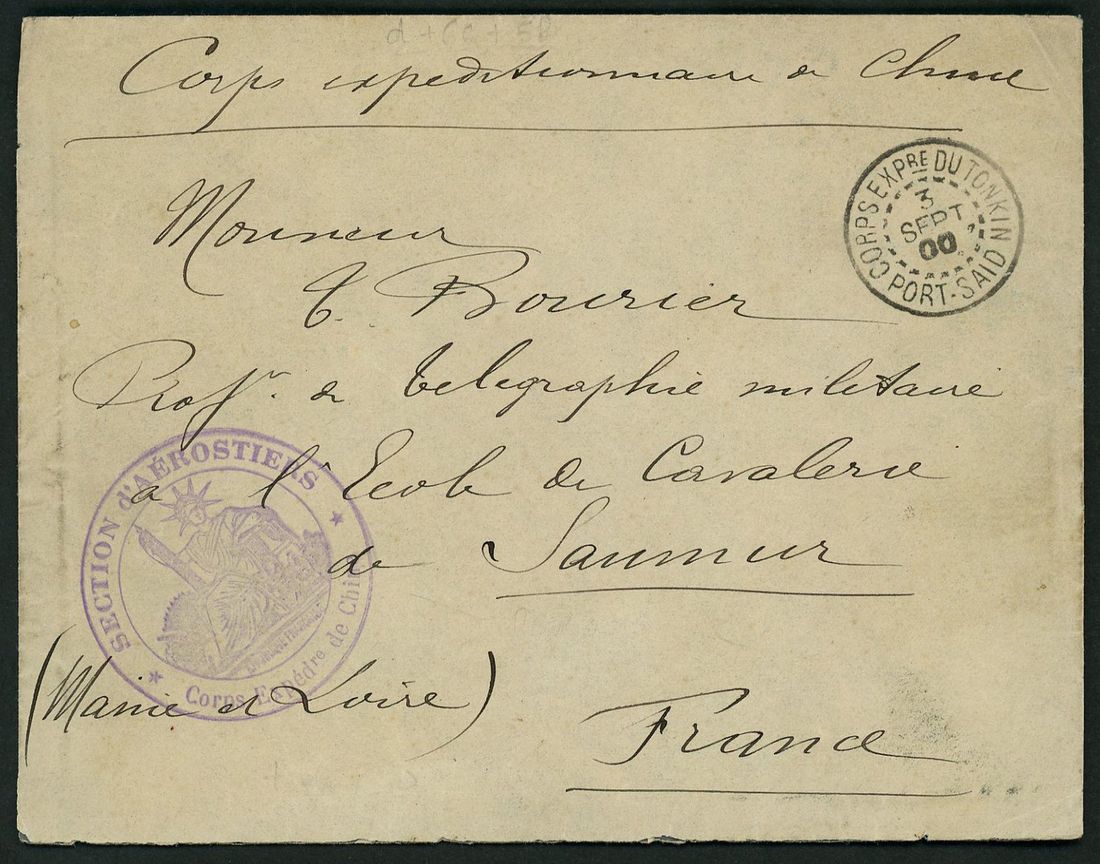 Corps expeditionnaire de Chine
CORPS EXPRE DU TONKIN
3
SEPT
00
PORT-SAID
Monsieur
E. Bourier
Profr. de telegraphie militaire
a l'Ecole de Cavalerie
de Saumur
(Maine et Loire)
France
SECTION d'AÉROSTIERS
Corps Expédre de Chi